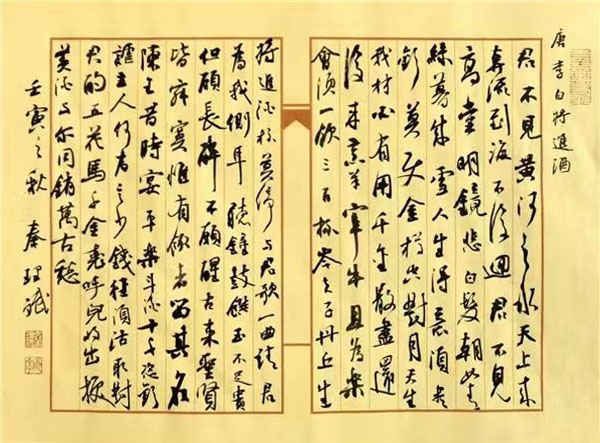 唐李白将進酒
君不見黄河之水天上来
奔流到海不復迴君不見
高堂明鏡悲白髮朝如青
絲暮成雪人生得意須尽
歡莫使金樽空對月天生
我材必有用千金散盡還
復来烹羊宰牛且為樂
會須一飲三百杯岑夫子丹丘生
将進酒杯莫停与君歌一曲請君
為我側耳聽鐘鼓饌玉不足貴
但願長醉不願醒古来聖賢
皆寂寞惟有飲者留其名
陳王昔時宴平樂斗酒十千恣歡
謔主人何為言少錢徑須沽取對
君酌五花馬千金裘呼兒将出换
美酒与尔同銷萬古愁
壬寅之秋 秦理斌